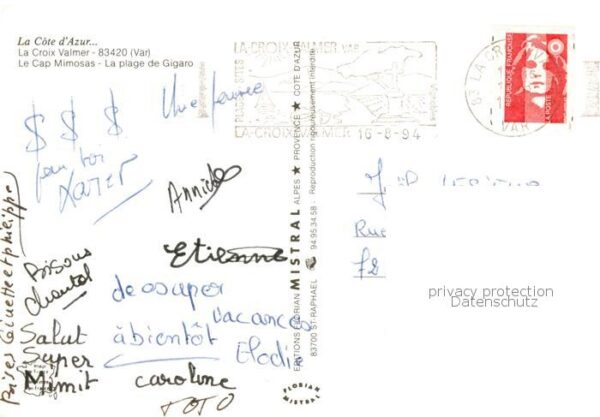 La Côte d'Azur...
La Croix Valmer - 83420 (Var)
Le Cap Mimosas - La plage de Gigaro
LA-CROIX-VALMER VAR
LA-CROIX-VALMER 16-8-94
83 LA CR
VAR
RÉPUBLIQUE FRANÇAISE
LA POSTE
$ $ $
pour toi
Xavier
Une pensée
Annick
Etienne
Bises Ginette et philippe
Bisous
Chantal
de super
vacances
à bientôt
Elodie
Salut
Super
Mimit
caroline
TOTO
EDITIONS FLORIAN MISTRAL ALPES ★ PROVENCE ★ CÔTE D'AZUR
83700 ST-RAPHAEL 94.95.34.58 Reproduction rigoureusement interdite
FLORIAN
MISTRAL
Rue
privacy protection
Datenschutz